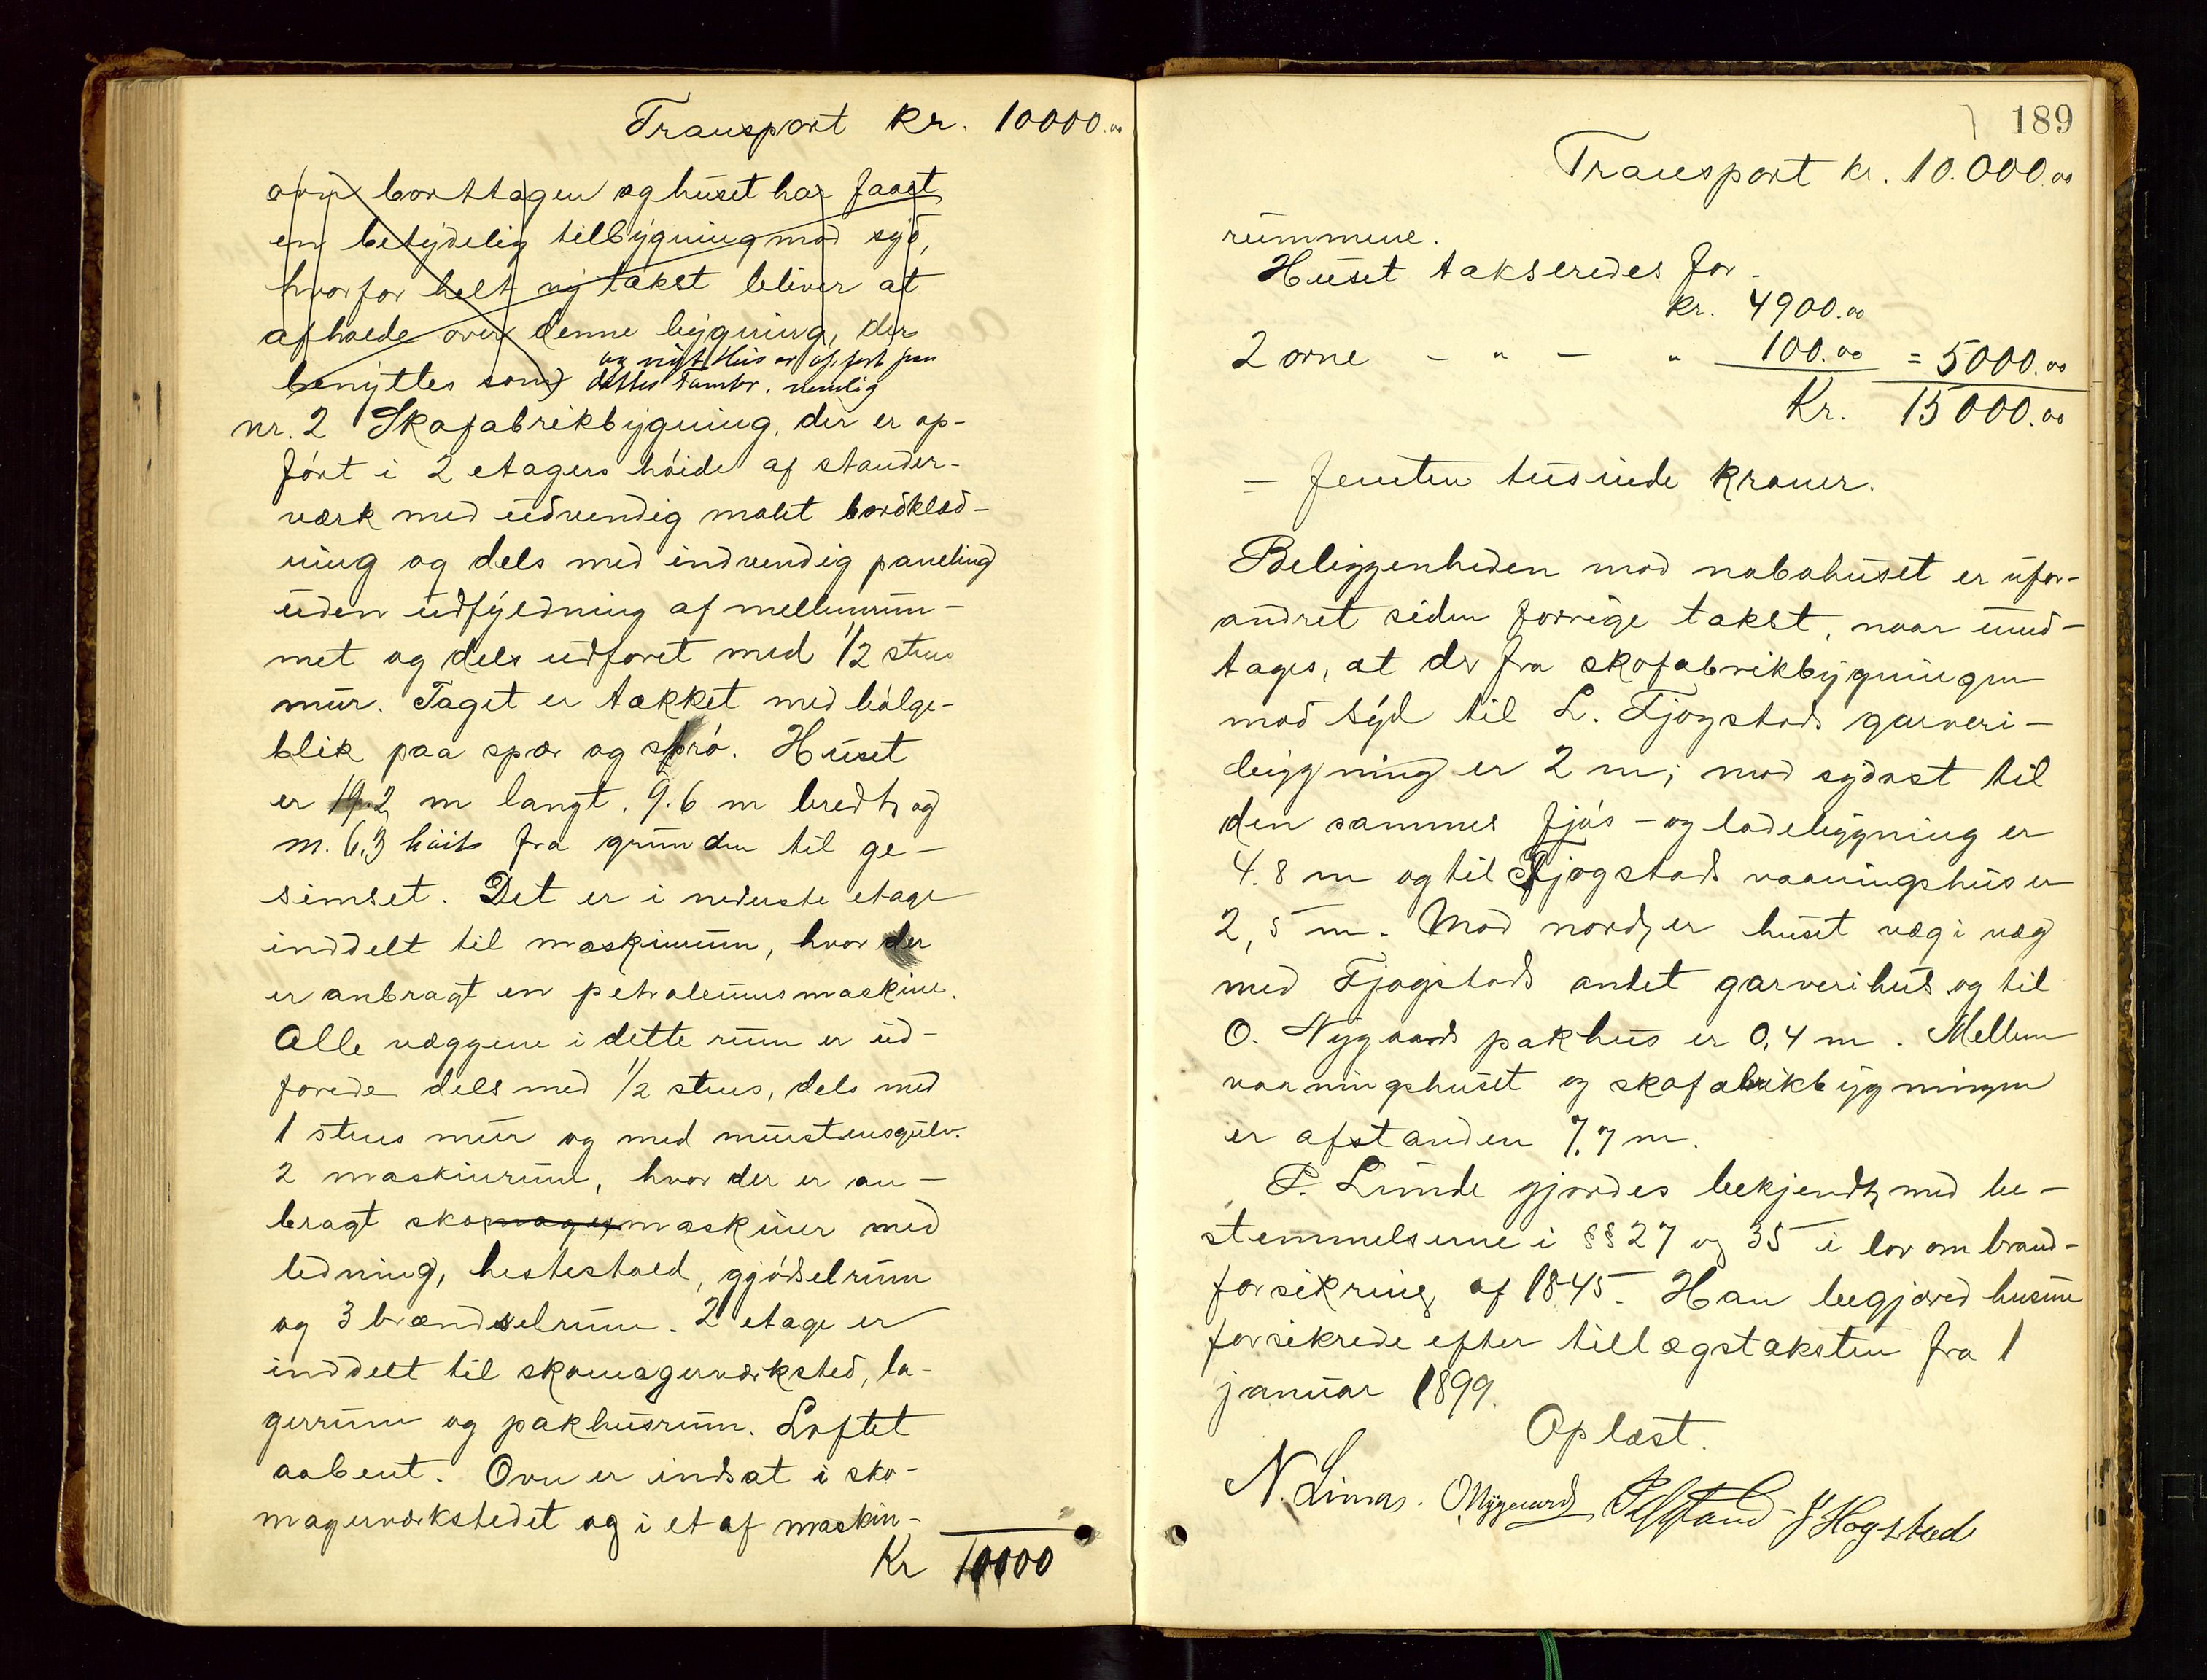 Transport kr. 10000.00
ovn borttagen og huset har faaet
en betydelig tilbygning mod syd,
hvorfor helt ny takst bliver at
afholde over denne bygning, der
og nyt Hus er opført paa
benyttes som dettes Tomter, nemlig
nr. 2 Skofabrikbygning, der er op-
ført i 2 etagers høide af stander-
værk med udvendig malet bordklæd-
ning og dels med indvendig paneling
uden udfyldning af mellemrum-
met og dels udforet med 1/2 stens
mur. Taget er tækket med bølge-
blik paa spær og strø. Huset
er 19.2 m langt, 9.6 m bredt og
m. 6,3 høit fra grunden til ge-
simset. Det er i nederste etage
inddelt til maskinrum, hvor der
er anbragt en petroleumsmaskine.
Alle væggene i dette rum er ud-
forede dels med 1/2 stens, dels med
1 stens mur og med murstensgulv.
2 maskinrum, hvor der er an-
bragt skomagermaskiner med
ledning, hestestald, gjødselrum
og 3 brændselrum. 2 etage er
inddelt til skomagerværksted, la-
gerrum og pakhusrum. Loftet
aabent. Ovn er indsat i sko-
magerværkstedet og i et af maskin-
Kr 10000
189
Transport kr. 10.000.00
rummene.
Huset takseredes for
kr. 4900.00
2 ovne - " - " 100.00 = 5000.00
Kr. 15000.00
= femten tusinde kroner.
Beliggenheden mod nabohuset er ufor-
andret siden forrige takst, naar und-
tages, at der fra skofabrikbygningen
mod syd til L. Fjogstads garveri-
bygning er 2 m; mod sydost til
den sammes fjøs- og ladebygning er
4.8 m og til Fjogstads vaaningshus er
2,5 m. Mod nord er huset væg i væg
med Fjogstads andet garverihus og til
O. Nygaards pakhus er 0,4 m. Mellem
vaaningshuset og skofabrikbygningen
er afstanden 7,7 m.
P. Lunde gjordes bekjendt med be-
stemmelserne i §§ 27 og 35 i lov om brand-
forsikring af 1845. Han begjæred husene
forsikrede efter tillægstaksten fra 1
januar 1899.
Oplæst.
N. Limas. O Nygaard J Hogstad